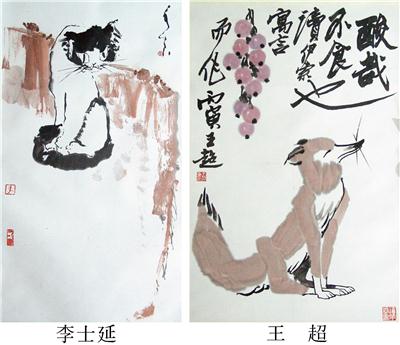 酸哉
不食也
讀伊索
寓言
而作
丙寅王超
李士延
王 超